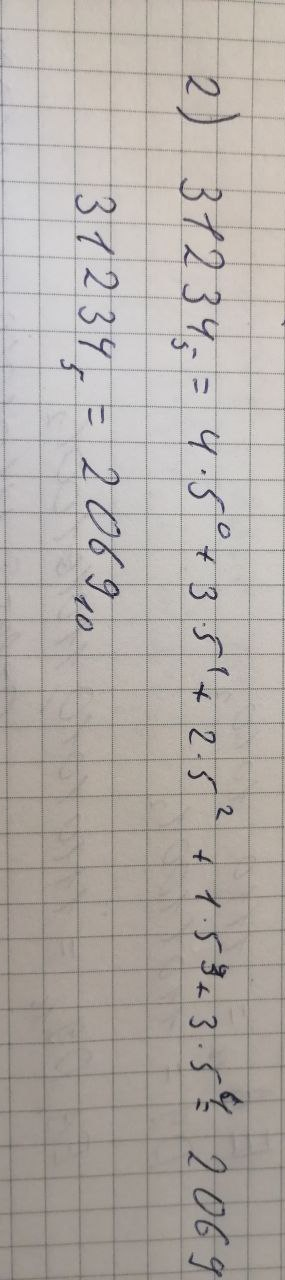 2) 31234₅ = 4·5⁰ + 3·5¹ + 2·5² + 1·5³ + 3·5⁴ = 2069
31234₅ = 2069₁₀